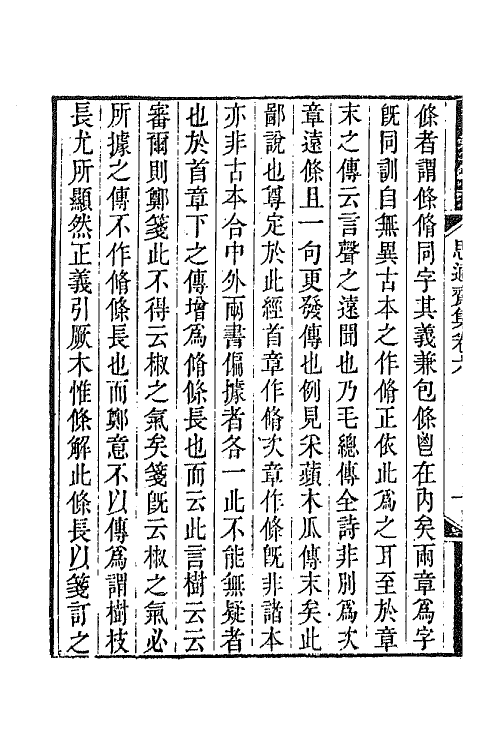 條者謂條脩同字其義兼包條鬯在內矣兩章爲字
旣同訓自無異古本之作脩正依此爲之耳至於章
末之傳云言聲之遠聞也乃毛總傳全詩非別爲次
章遠條且一句更發傳也例見采蘋木瓜傳末矣此
鄙說也尊定於此經首章作脩次章作條旣非諸本
亦非古本合中外兩書偏據者各一此不能無疑者
也於首章下之傳增爲脩條長也而云此言樹云云
審爾則鄭箋此不得云椒之氣矣箋旣云椒之氣必
所據之傳不作脩條長也而鄭意不以傳爲謂樹枝
長尤所顯然正義引厥木惟條解此條長以箋訂之
思適齋集卷六